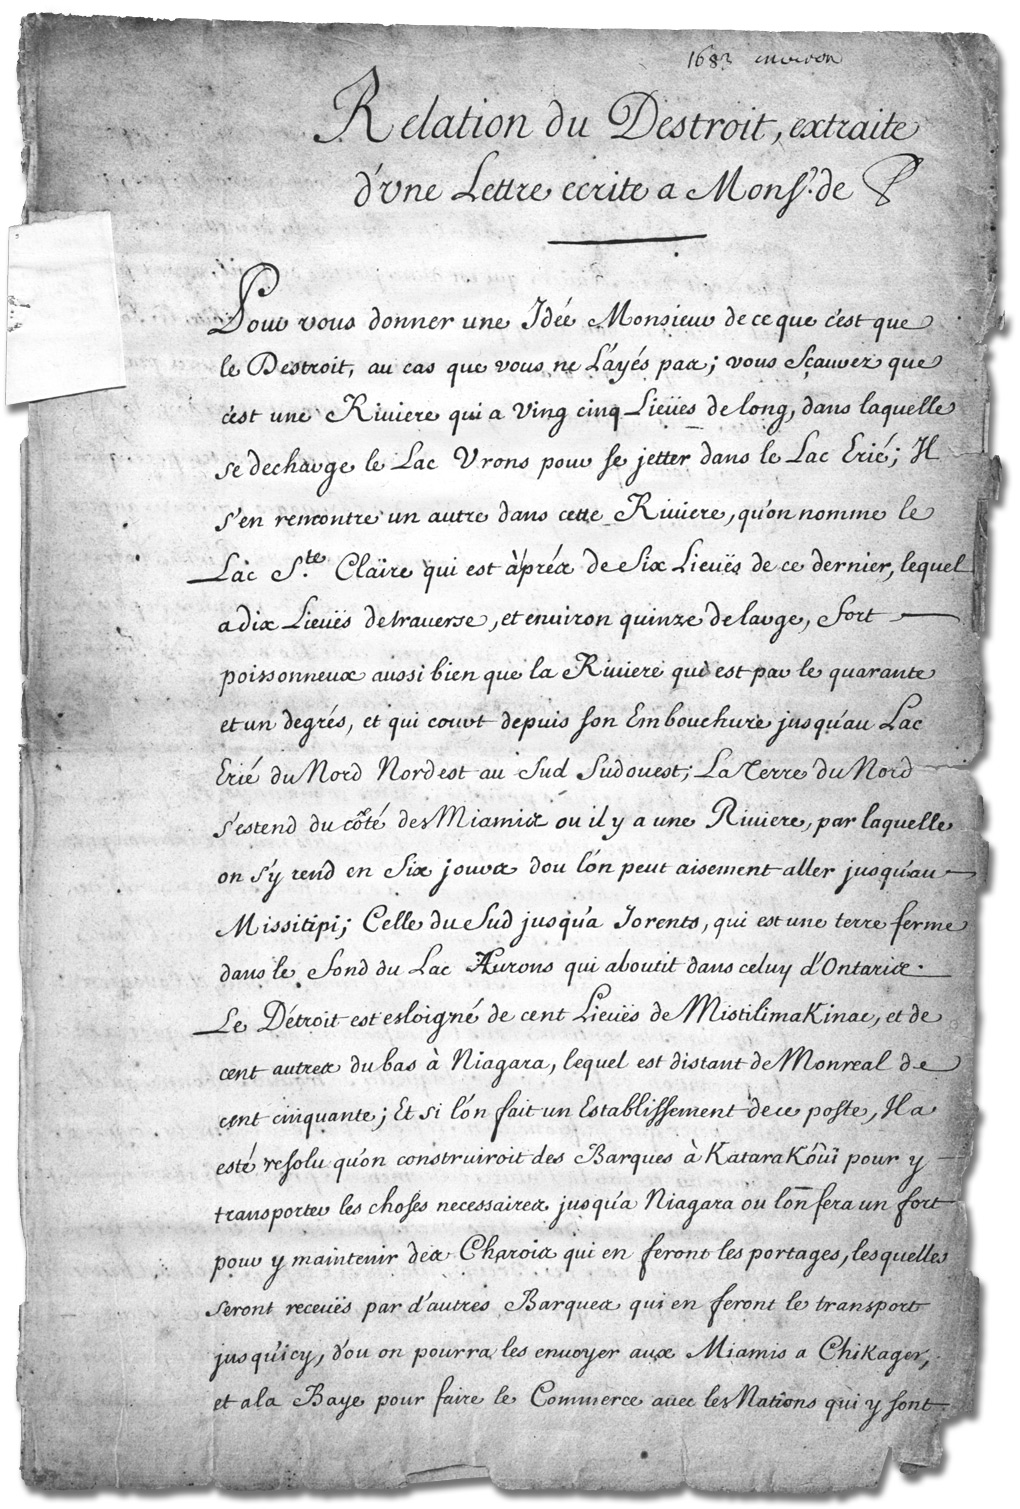 1682 environ
Relation du Destroit, extraite
d'vne Lettre ecrite a Mons.r de P
Pour vous donner une Idée Monsieur de ce que c'est que
le Destroit, au cas que vous ne L'ayés pas; vous Sçaurez que
c'est une Riviere qui a Ving cinq Lieües de long, dans laquelle
se decharge le Lac Vrons pour se jetter dans le Lac Erié; Il
s'en rencontre un autre dans cette Riviere, qu'on nomme le
Lac S.te Claïre qui est àprés de Six Lieuës de ce dernier, lequel
a dix Lieuës de traverse, et environ quinze de large, fort
poissonneux aussi bien que la Riviere qui est par le quarante
et un degrés, et qui court depuis son Embouchure jusqu'au Lac
Erié du Nord Nordest au Sud Sudouest; La Terre du Nord
s'estend du côté des Miamis ou il y a une Riviere, par laquelle
on s'y rend en Six jours dou l'on peut aisement aller jusqu'au
Missitipi; Celle du Sud jusqu'a Torento, qui est une terre ferme
dans le fond du Lac Hurons qui aboutit dans celuy d'Ontario.
Le Détroit est esloigné de cent Lieuës de Mistilimakinac, et de
cent autres du bas à Niagara, lequel est distant de Monreal de
cent cinquante; Et si l'on fait un Establissement de ce poste, Il a
esté resolu qu'on construiroit des Barques à KataraKôüi pour y
transporter les choses necessaires jusqu'a Niagara ou l'on fera un fort
pour y maintenir des Charois qui en feront les portages, lesquelles
seront receuës par d'autres Barques qui en feront le transport
jusqu'icy, d'ou on pourra les envoyer aux Miamis a ChiKagou,
et a la Baye pour faire le Commerce avec les Nations qui y sont